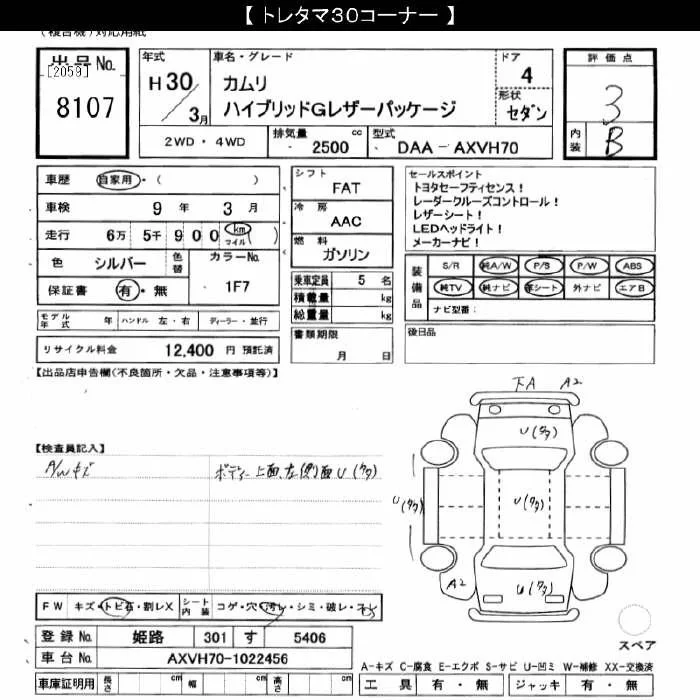 【 トレタマ30コーナー 】
(複合機)対応用紙
出品No.
[2059]
8107
年式
H30/3月
車名・グレード
カムリ
ハイブリッドGレザーパッケージ
ドア
4
形状
セダン
評価点
3
内装
B
2WD・4WD
排気量 2500 cc
型式 DAA-AXVH70
車歴 自家用・( )
車検 9年 3月
走行 6万 5千 9 0 0 km マイル
色 シルバー 色替 カラーNo. 1F7
保証書 有・無
モデル年式 年 ハンドル 左・右 ディーラー・並行
リサイクル料金 12,400 円 預託済
シフト
FAT
冷房
AAC
燃料
ガソリン
乗車定員 5 名
積載量 kg
総重量 kg
書類期限
月 日
セールスポイント
トヨタセーフティセンス!
レーダークルーズコントロール!
レザーシート!
LEDヘッドライト!
メーカーナビ!
装備品
S/R 純A/W P/S P/W ABS
純TV 純ナビ 革シート 外ナビ エアB
ナビ型番:
後日品
【出品店申告欄(不良箇所・欠品・注意事項等)】
【検査員記入】
A/Wキズ
ボディー上面、左側面U(クタ)
下A A2
U(クタ)
U(クタ)
U(クタ)
U(クタ)
A2
スペア
FW キズ・トビ石・割レX
シート内装 コゲ・穴・汚レ・シミ・破レ・スレ
登録No. 姫路 301 す 5406
車台No. AXVH70-1022456
車庫証明用 長さ cm 幅 cm 高さ cm
A-キズ C-腐食 E-エクボ S-サビ U-凹ミ W-補修 XX-交換済
工具 有・無 ジャッキ 有・無